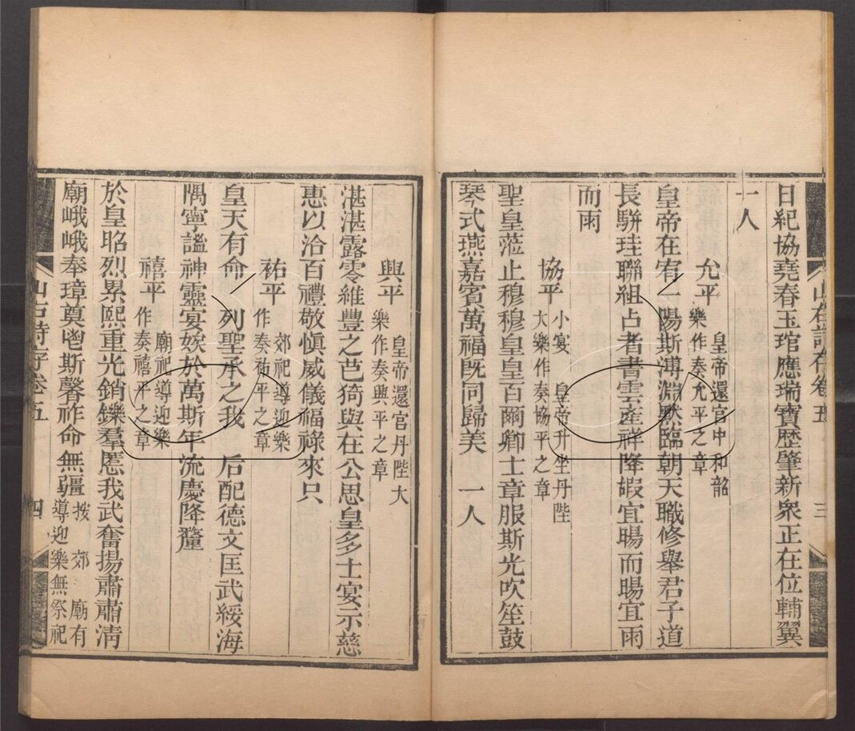 日紀協堯春玉琯應瑞寶歷肇新衆正在位輔翼
一人
允平
皇帝還宮中和韶
樂作奏允平之章
皇帝在宥一陽斯溥淵默臨朝天職修舉君子道
長駢珪聯組占者書雲產祥降嘏宜暘而暘宜雨
而雨
協平
小宴 皇帝升坐丹陛
大樂作奏協平之章
聖皇蒞止穆穆皇皇百爾卿士章服斯光吹笙鼓
琴式燕嘉賓萬福旣同歸美 一人
興平
皇帝還宮丹陛大
樂作奏興平之章
湛湛露零維豐之芑猗與在公思皇多士宴示慈
惠以洽百禮敬愼威儀福祿來只
祐平
郊祀導迎樂
作奏祐平之章
皇天有命 列聖承之我 后配德文匡武綏海
隅寧謐神靈宴娭於萬斯年流慶降釐
禧平
廟祀導迎樂
作奏禧平之章
於皇昭烈累熙重光銷鑠羣慝我武奮揚肅肅淸
廟峨峨奉璋奠鬯斯馨祚命無疆
按 郊 廟有
導迎樂無祭祀
山右詩存卷五 三
山右詩存卷五 四